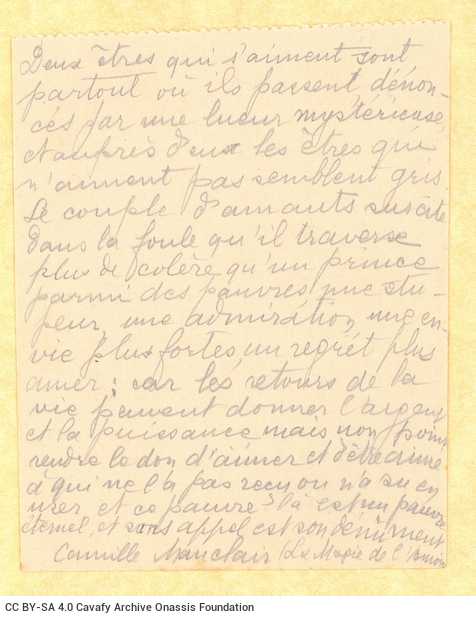 Deux êtres qui s'aiment sont
partout où ils passent dénon-
cés par une lueur mystérieuse,
et auprès d'eux les êtres qui
n'aiment pas semblent gris
Le couple d'amants suscite
dans la foule qu'il traverse
plus de colère qu'un prince
parmi des pauvres, une stu-
peur, une admiration, une en-
vie plus fortes, un regret plus
amer; car les retours de la
vie peuvent donner l'argent
et la puissance mais non point
rendre le don d'aimer et d'être aimé
à qui ne l'a pas reçu ou n'a su en
user, et ce pauvre-là est un pauvre
éternel, et sans appel est son dénûment
Camille Mauclair (La Magie de l'Amour
CC BY-SA 4.0 Cavafy Archive Onassis Foundation